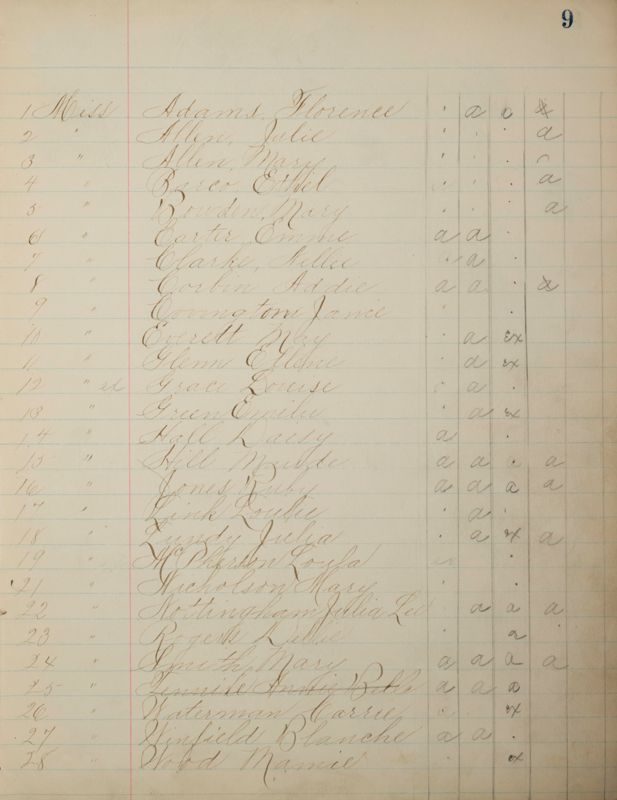 9
1 Miss Adams, Florence . a a x
2 " Allen, Julie . . . a
3 " Allen, Mary . . .
4 " Barco, Ethel . . . a
5 " Bowden, Mary . . . a
6 " Carter, Emme a a .
7 " Clarke, Nellie . a
8 " Corbin Addie a a . a
9 " Covington, Janie . .
10 " Everett May . a ex
11 " Glenn Ellene . a ex
12 " ex Grace Louise . a .
13 " Green Emilie . a ex
14 " Hall Daisy a .
15 " Hill Maude a a . a
16 " Jones, Ruby a a a a
17 " Link Loulie . a .
18 " Lundy Julia . a x a
19 " McPherson Loula .
21 " Nicholson Mary . .
22 " Nottingham Julia Lee a a a
23 " Rogers . a
24 " Smith, Mary a a a a
25 " Tennile Annie Bell a a a
26 " Waterman Carrie . . x
27 " Winfield Blanche a a .
28 " Wood Mamie . x